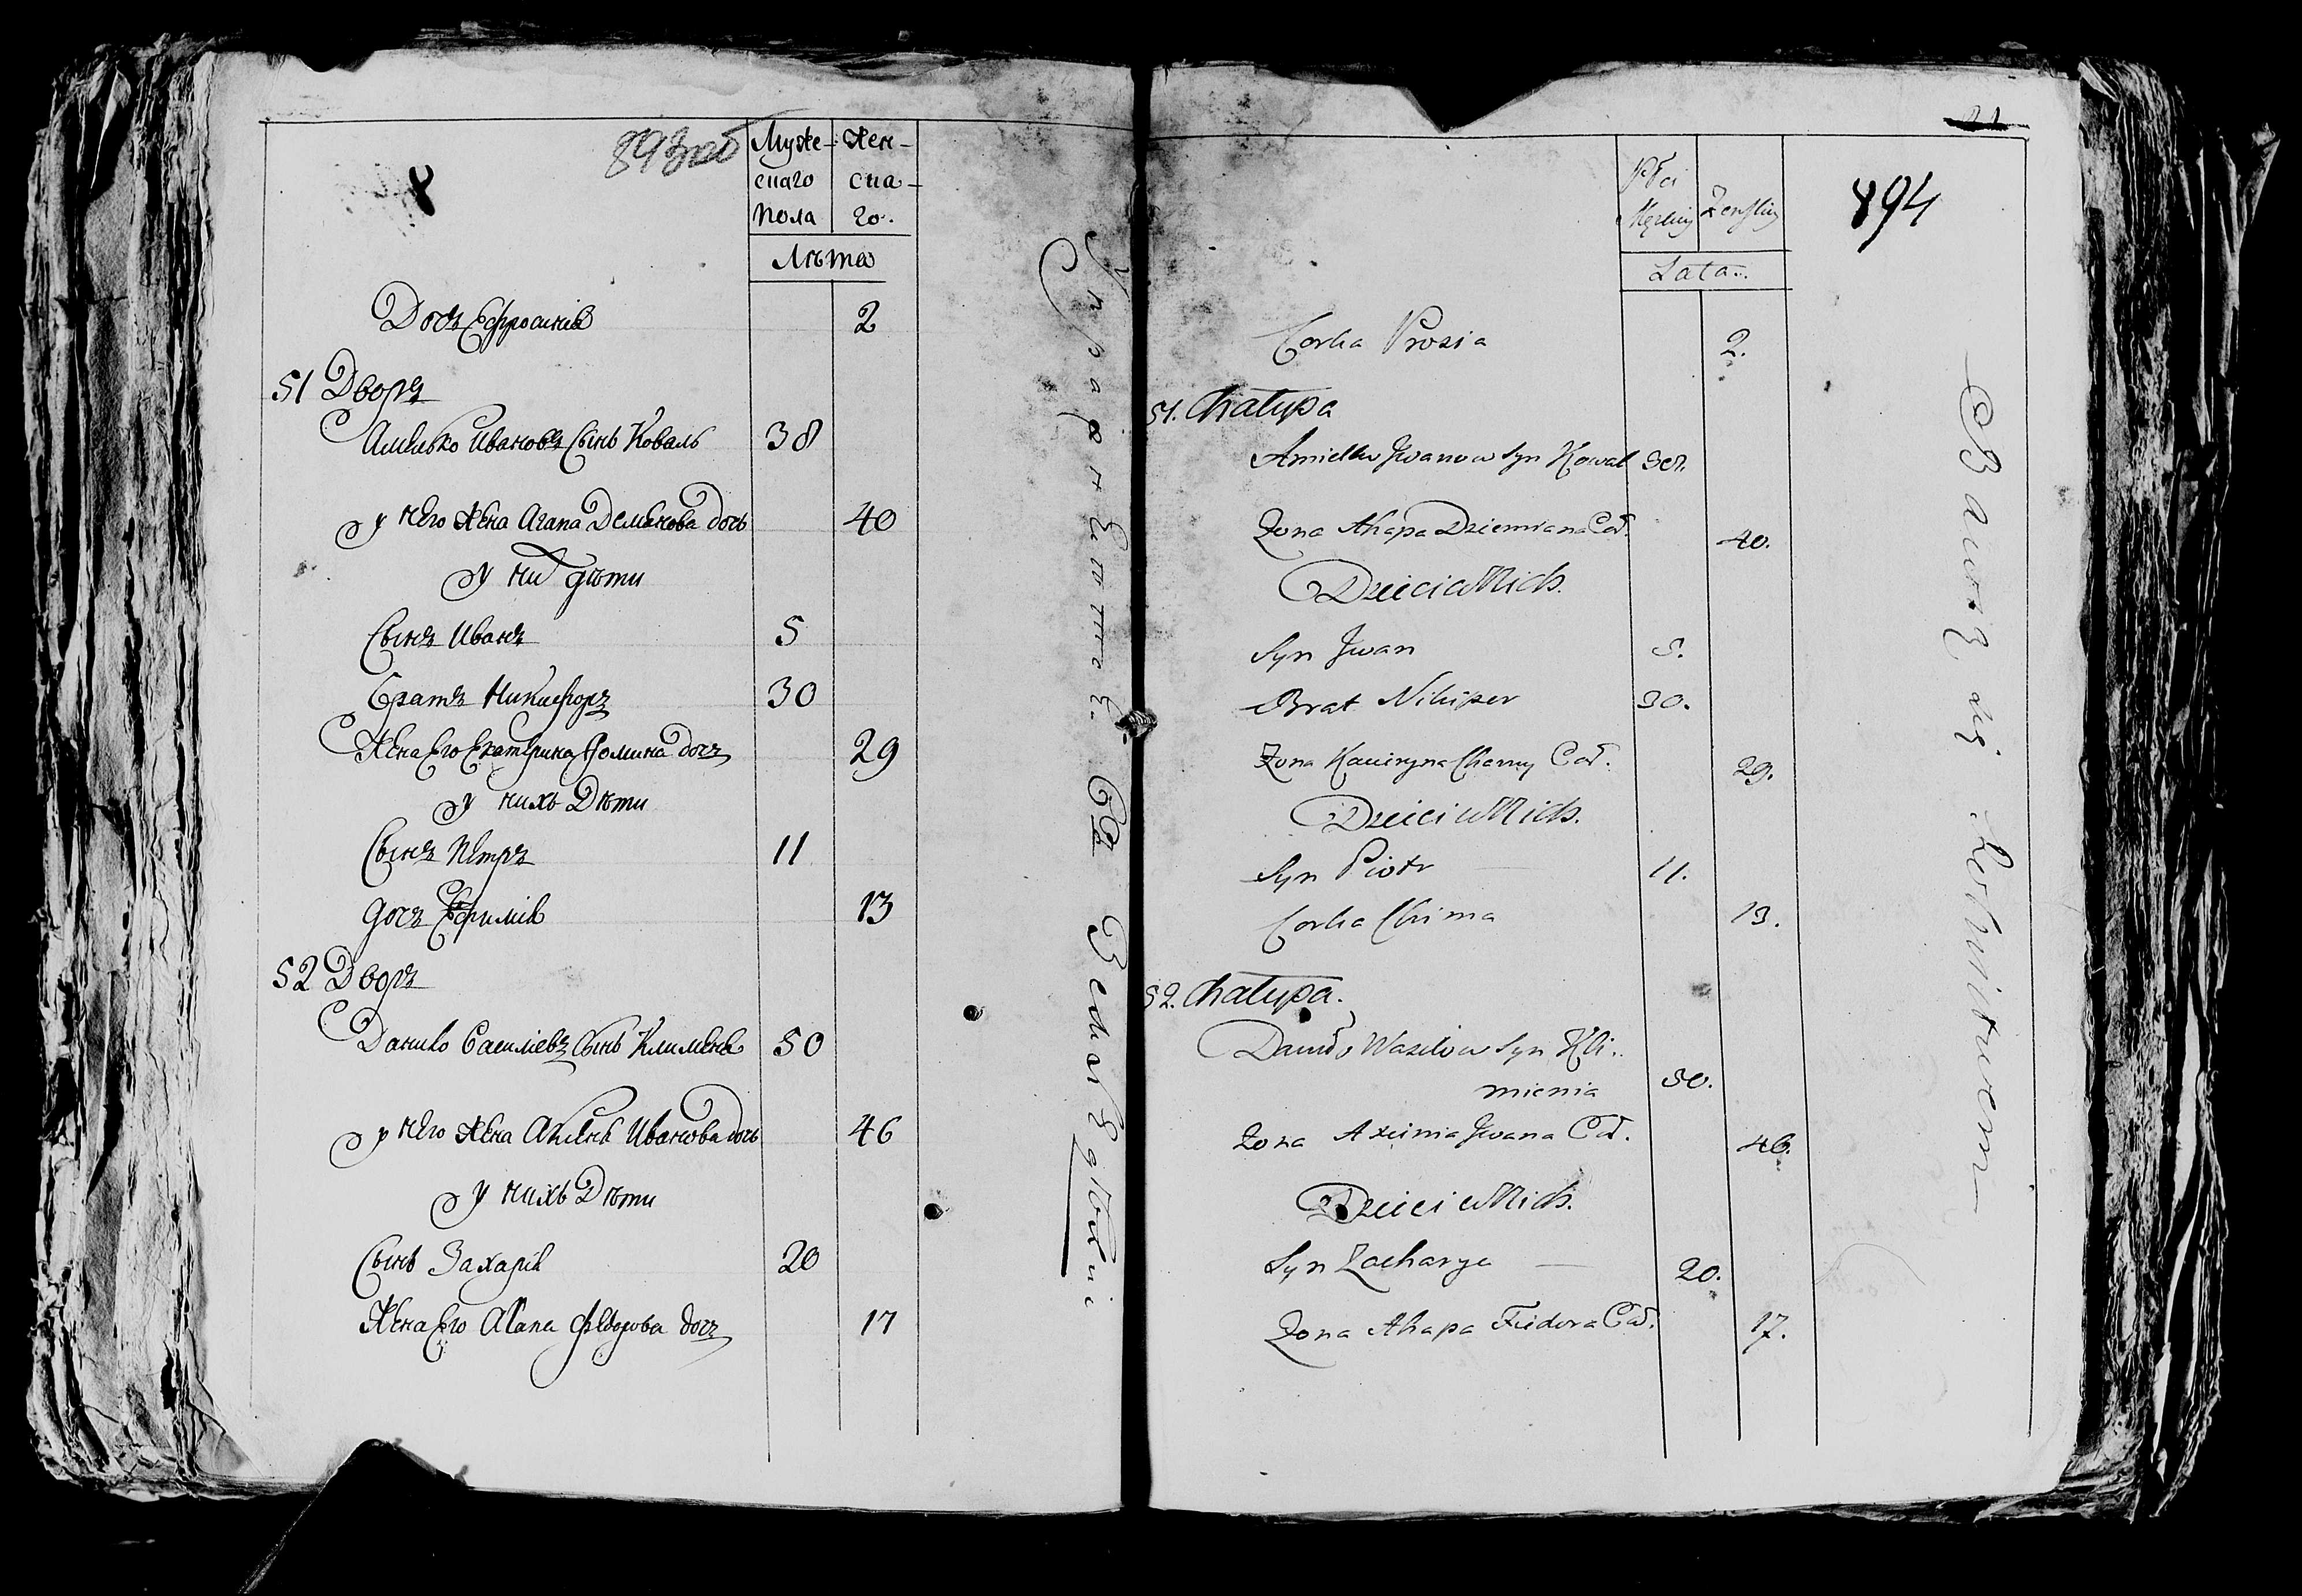 893 об
8
Муже- Жен-
скаго ска-
пола го.
Лѣта
Дочъ Ефросинія 2
51 Дворъ
Амилко Ивановъ Сынъ Коваль 38
у него Жена Агапа Демянова дочь 40
у ни дѣти
Сынъ Иванъ 5
Братъ Никифоръ 30
Жена Его Екатерина Фомина дочъ 29
у нихъ Дѣти
Сынъ Петръ 11
дочъ Ефимія 13
52 Дворъ
Данило Василіевъ Сынъ Клименя 50
у него Жена Аксеня Иванова дочь 46
у нихъ Дѣти
Сынъ Захарій 20
Жена Его Агапа Федорова дочъ 17
894
Płci
Męzkiey Zenskiey
Lata
Corka Prosia 2.
51. Chałupa
Amielko Jwanow Syn Kowal 38.
Zona Ahapa Dziemiana Cor. 40.
Dzieci u Nich.
Syn Jwan 5.
Brat Nikiper 30.
Zona Kaciryna Chomy Cor. 29.
Dzieci u Nich.
Syn Piotr 11.
Corka Chima 13.
52. Chałupa.
Daniło Wasilow Syn Kli..
mienia 50.
Zona Axinia Jwana Cor. 46.
Dzieci u Nich.
Syn Zacharya 20.
Zona Ahapa Fiedora Cor. 17.